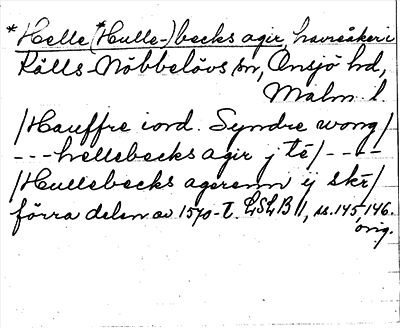 *Helle(*Hulle-)becks agir, havreåker i
Källs-Nöbbelövs sn, Onsjö hd,
Malm. l.
/Hauffre iord. Syndre wong/
---hellebecks agir j tē/----
/Hullebecks agerenn ij skr/
förra delen av 1570-t. LSLB II, ss. 145, 146.
orig.